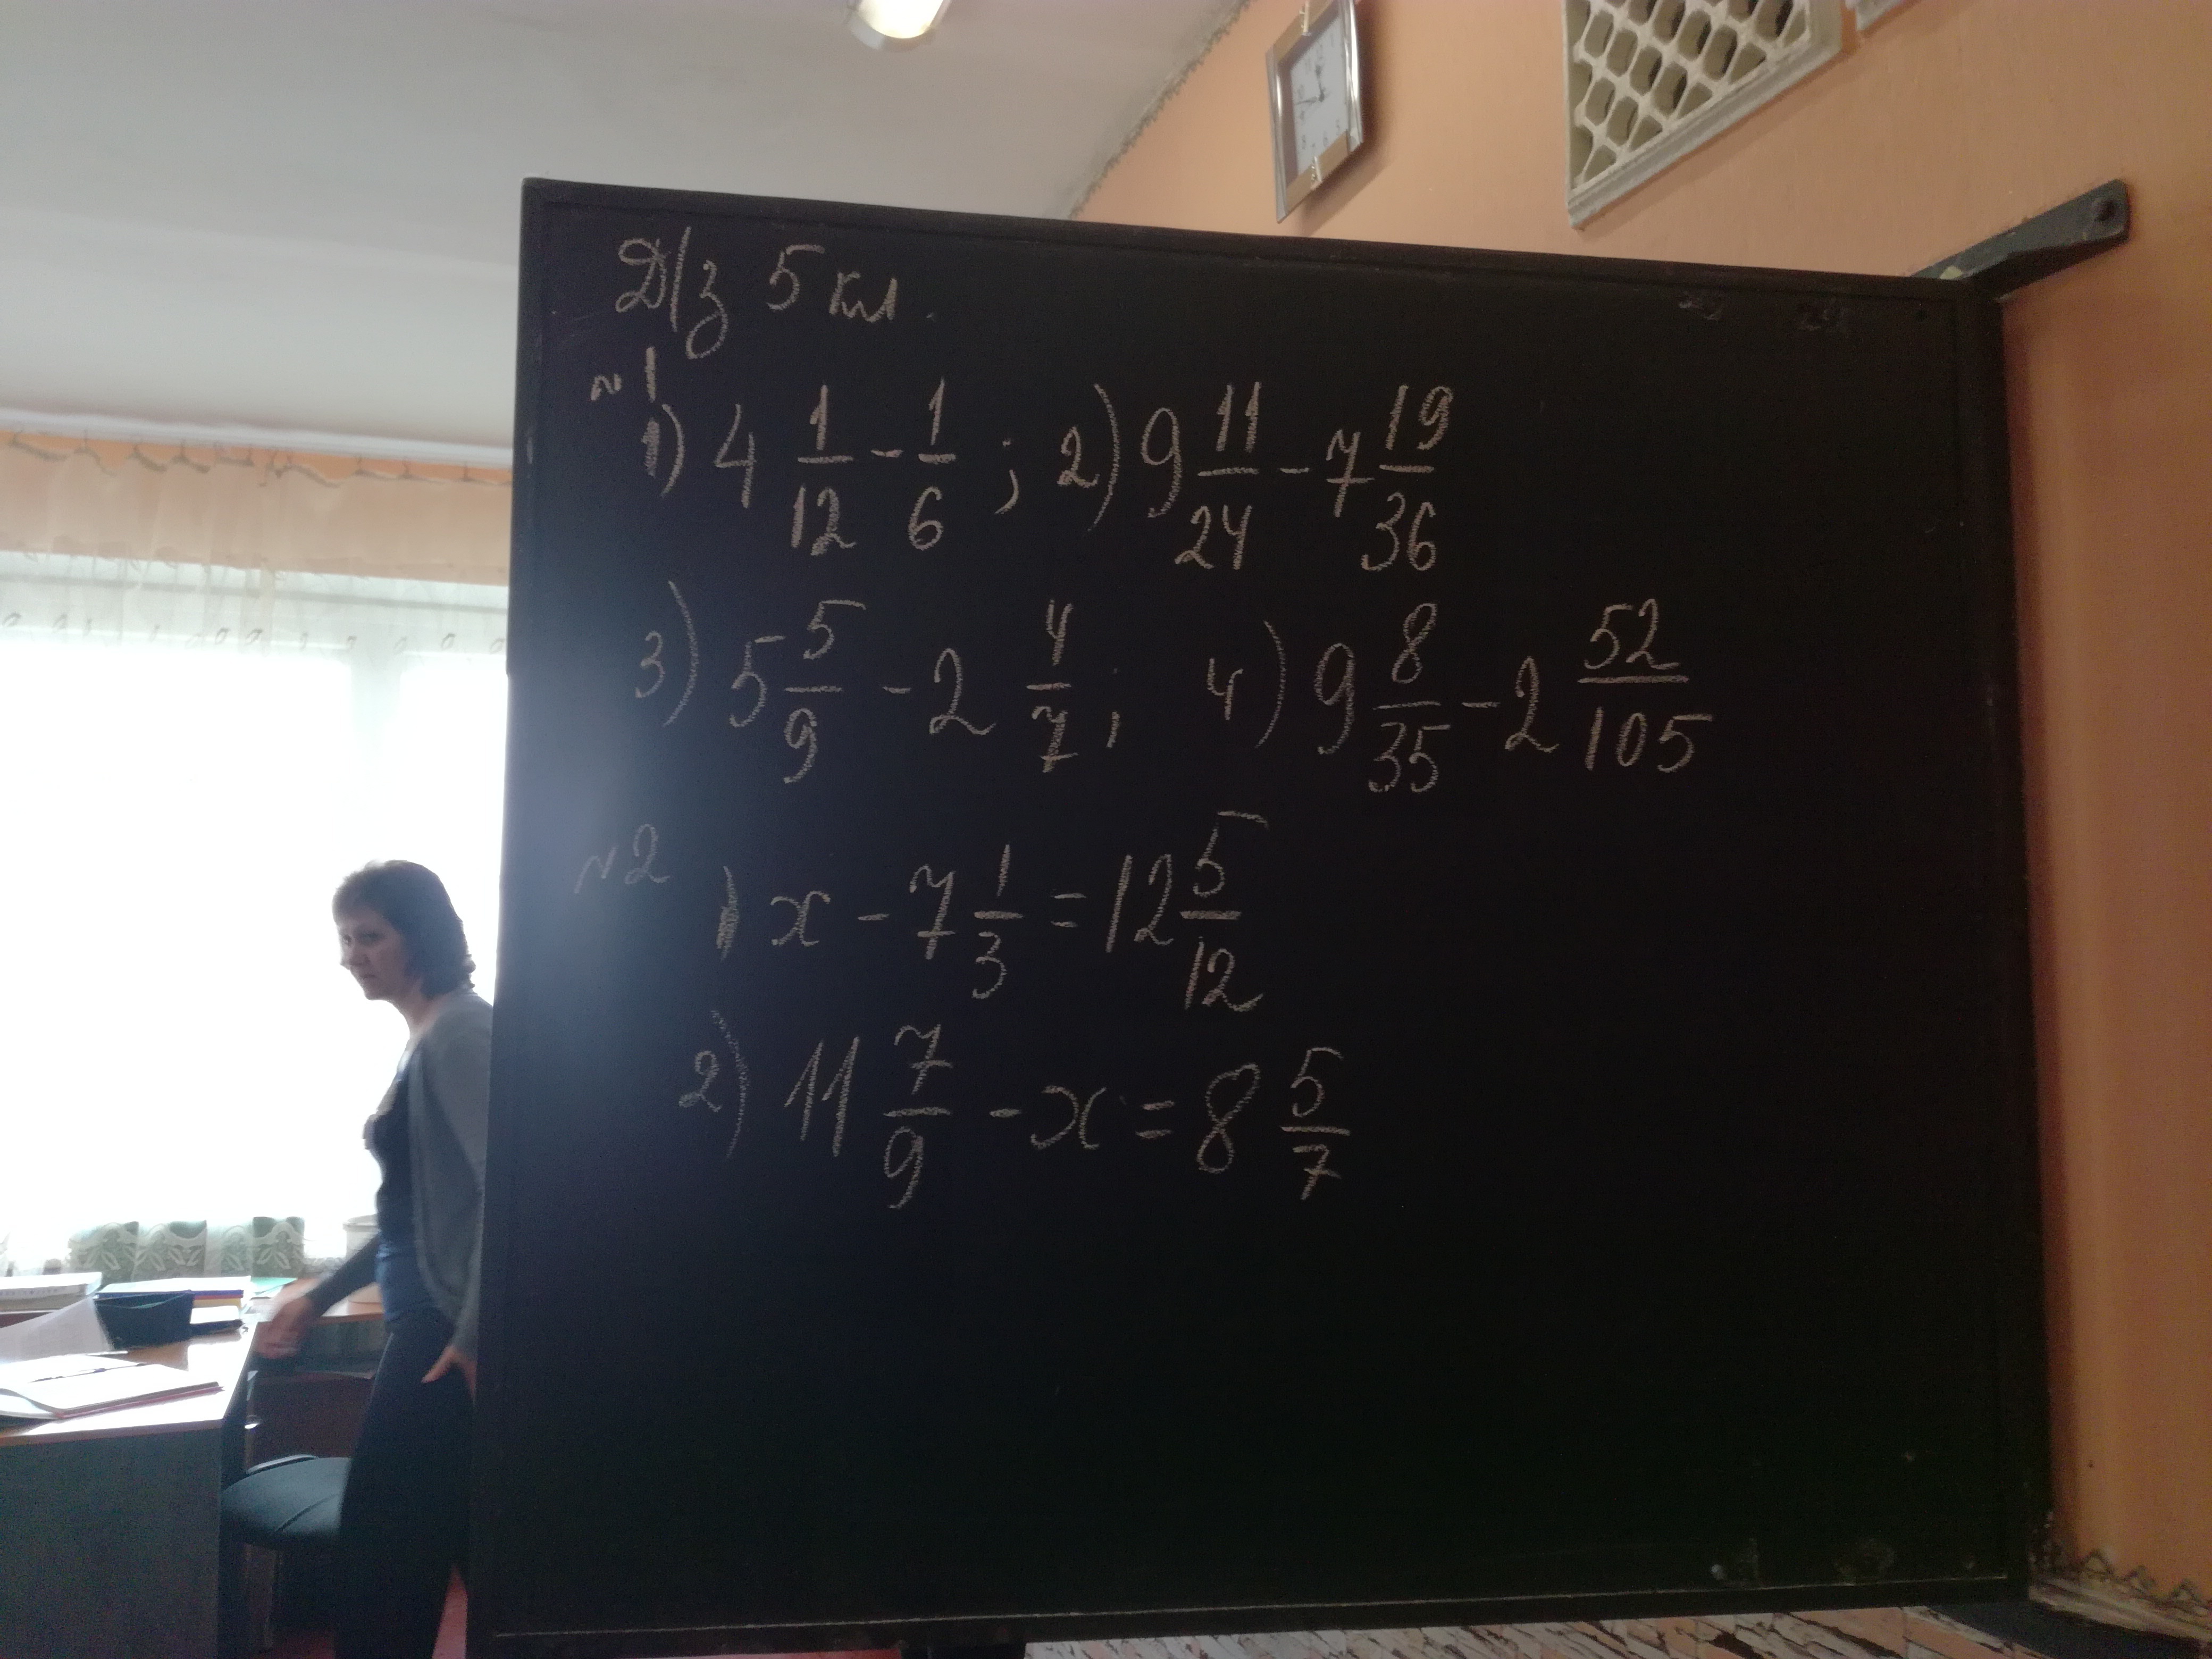 Д/з 5 кл.
№1
1) 4 1/12 - 1/6 ; 2) 9 11/24 - 7 19/36
3) 5 5/9 - 2 4/7 ; 4) 9 8/35 - 2 52/105
№2
1) x - 7 1/3 = 12 5/12
2) 11 7/9 - x = 8 5/7